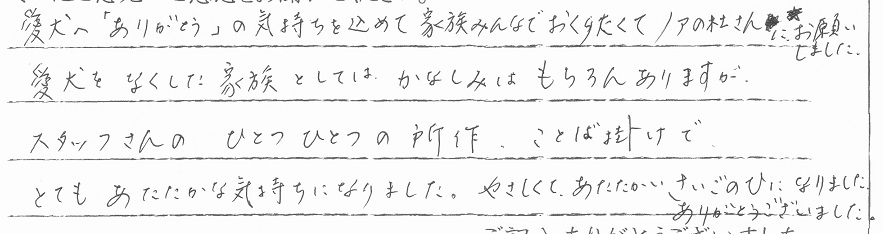 愛犬へ「ありがとう」の気持ちを込めて家族みんなでおくりたくてノアの杜さんにお願いしました。
愛犬をなくした家族としては かなしみは もちろんありますが、
スタッフさんの ひとつひとつの所作、ことば掛けで、
とても あたたかな気持ちになりました。やさしくて、あたたかい さいごのひになりました。
ありがとうございました。